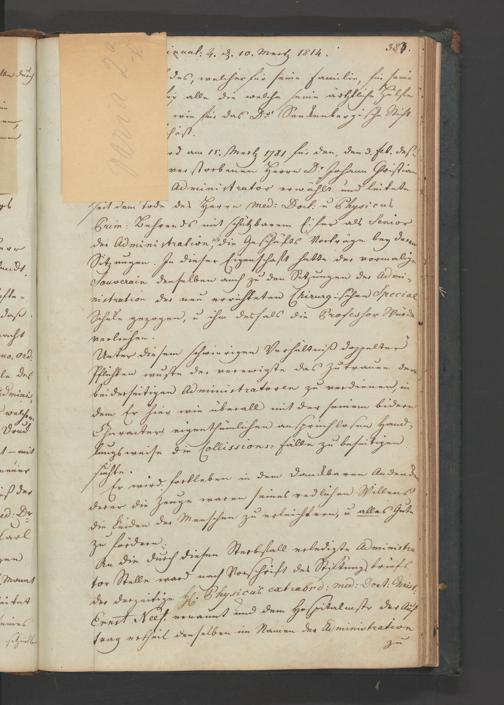 383.
Signat: F. d. 10. Mertz 1814.
des, welcher für seine Familie, für seine
für alle die welche seine ärztliche Hülfe
wie für das Dr Senckenberg: Stift
ward am 15. Mertz 1781 für den, den 3. Feb. des:
verstorbenen Herrn Dr Johann Christian
Administrator erwählt und leitete
seit dem Tode des Herrn Med: Doct: u Physicus
Prim: Behrends mit schätzbarem Eifer als Senior
der Administration, die Geschäfts Vorträge bey deren
Sitzungen. In dieser Eigenschaft hatte der vormalige
Souverain denselben auch zu den Sitzungen der Admi-
nistration der neu errichteten Chirurg:ischen Special
Schule gezogen, u ihm deshalb die Professor Würde
verliehen.
Unter diesem schwierigen Verhältniß doppelter
Pflichten wuste der verewigte das Zutrauen der
beiderseitigen Administratoren zu verdienen, in
dem Er hier wie überall mit der seinem biedern
Character eigenthümlichen anspruchlosen Hand,
lungsweise die Collissions: Fälle zu beseitigen
suchte.
Er wird fortleben in dem dankbaren Andenken
derer die Zeuge waren seines redlichen Willens
die Leiden der Menschen zu erleichtern, u alles Gute
zu fördern.
An die durch diesen Sterbfall erledigte Administra
tor Stelle ward nach Vorschrift des Stiftungsbriefs
der derzeitige H. Physicus extraord: med: Doct. Christ.
Ernst Neef. ernannt und dem Hospitalmstr der Auf
trag ertheilt denselben im Namen der Administration
zu